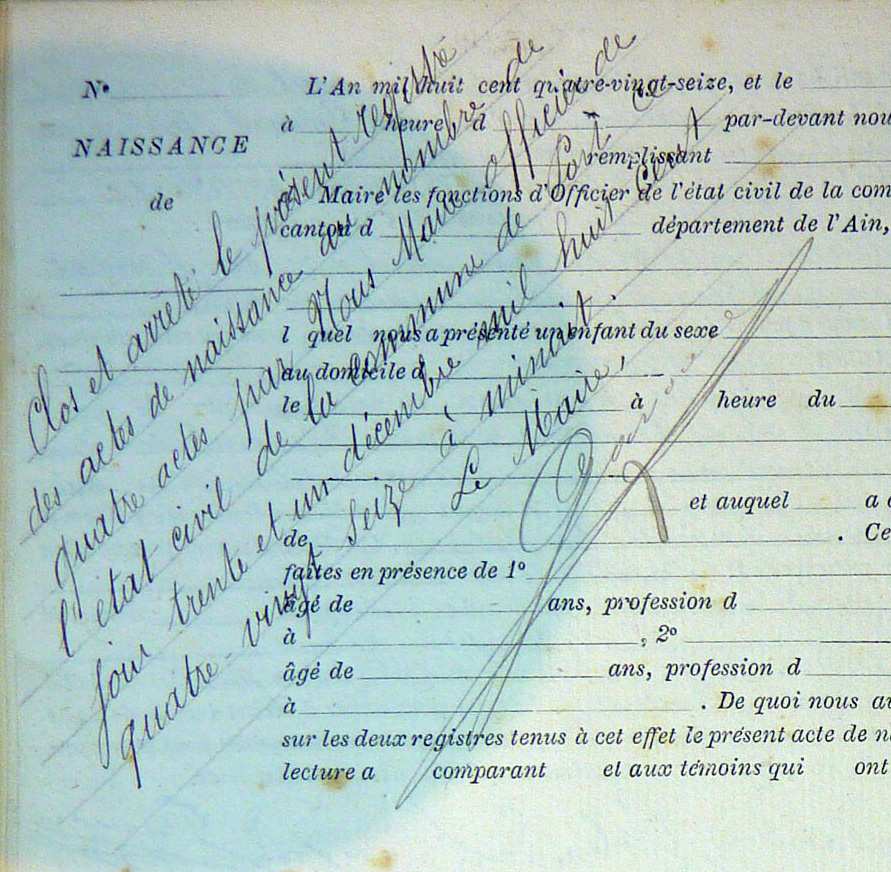 N°
NAISSANCE
de
L'An mil huit cent quatre-vingt-seize, et le
à heure d par-devant nou
remplissant
d Maire les fonctions d'Officier de l'état civil de la com
canton d département de l'Ain,
l quel nous a présenté un enfant du sexe
au domicile d
le à heure du
et auquel a é
de . Ce
faites en présence de 1°
âgé de ans, profession d
à , 2°
âgé de ans, profession d
à . De quoi nous av
sur les deux registres tenus à cet effet le présent acte de na
lecture a comparant et aux témoins qui ont
Clos et arrêté le présent registre
des actes de naissance au nombre de
quatre actes par Nous Maire officier de
l'état civil de la commune de Port ce
jour trente et un décembre mil huit cent
quatre-vingt seize à minuit.
Le Maire,